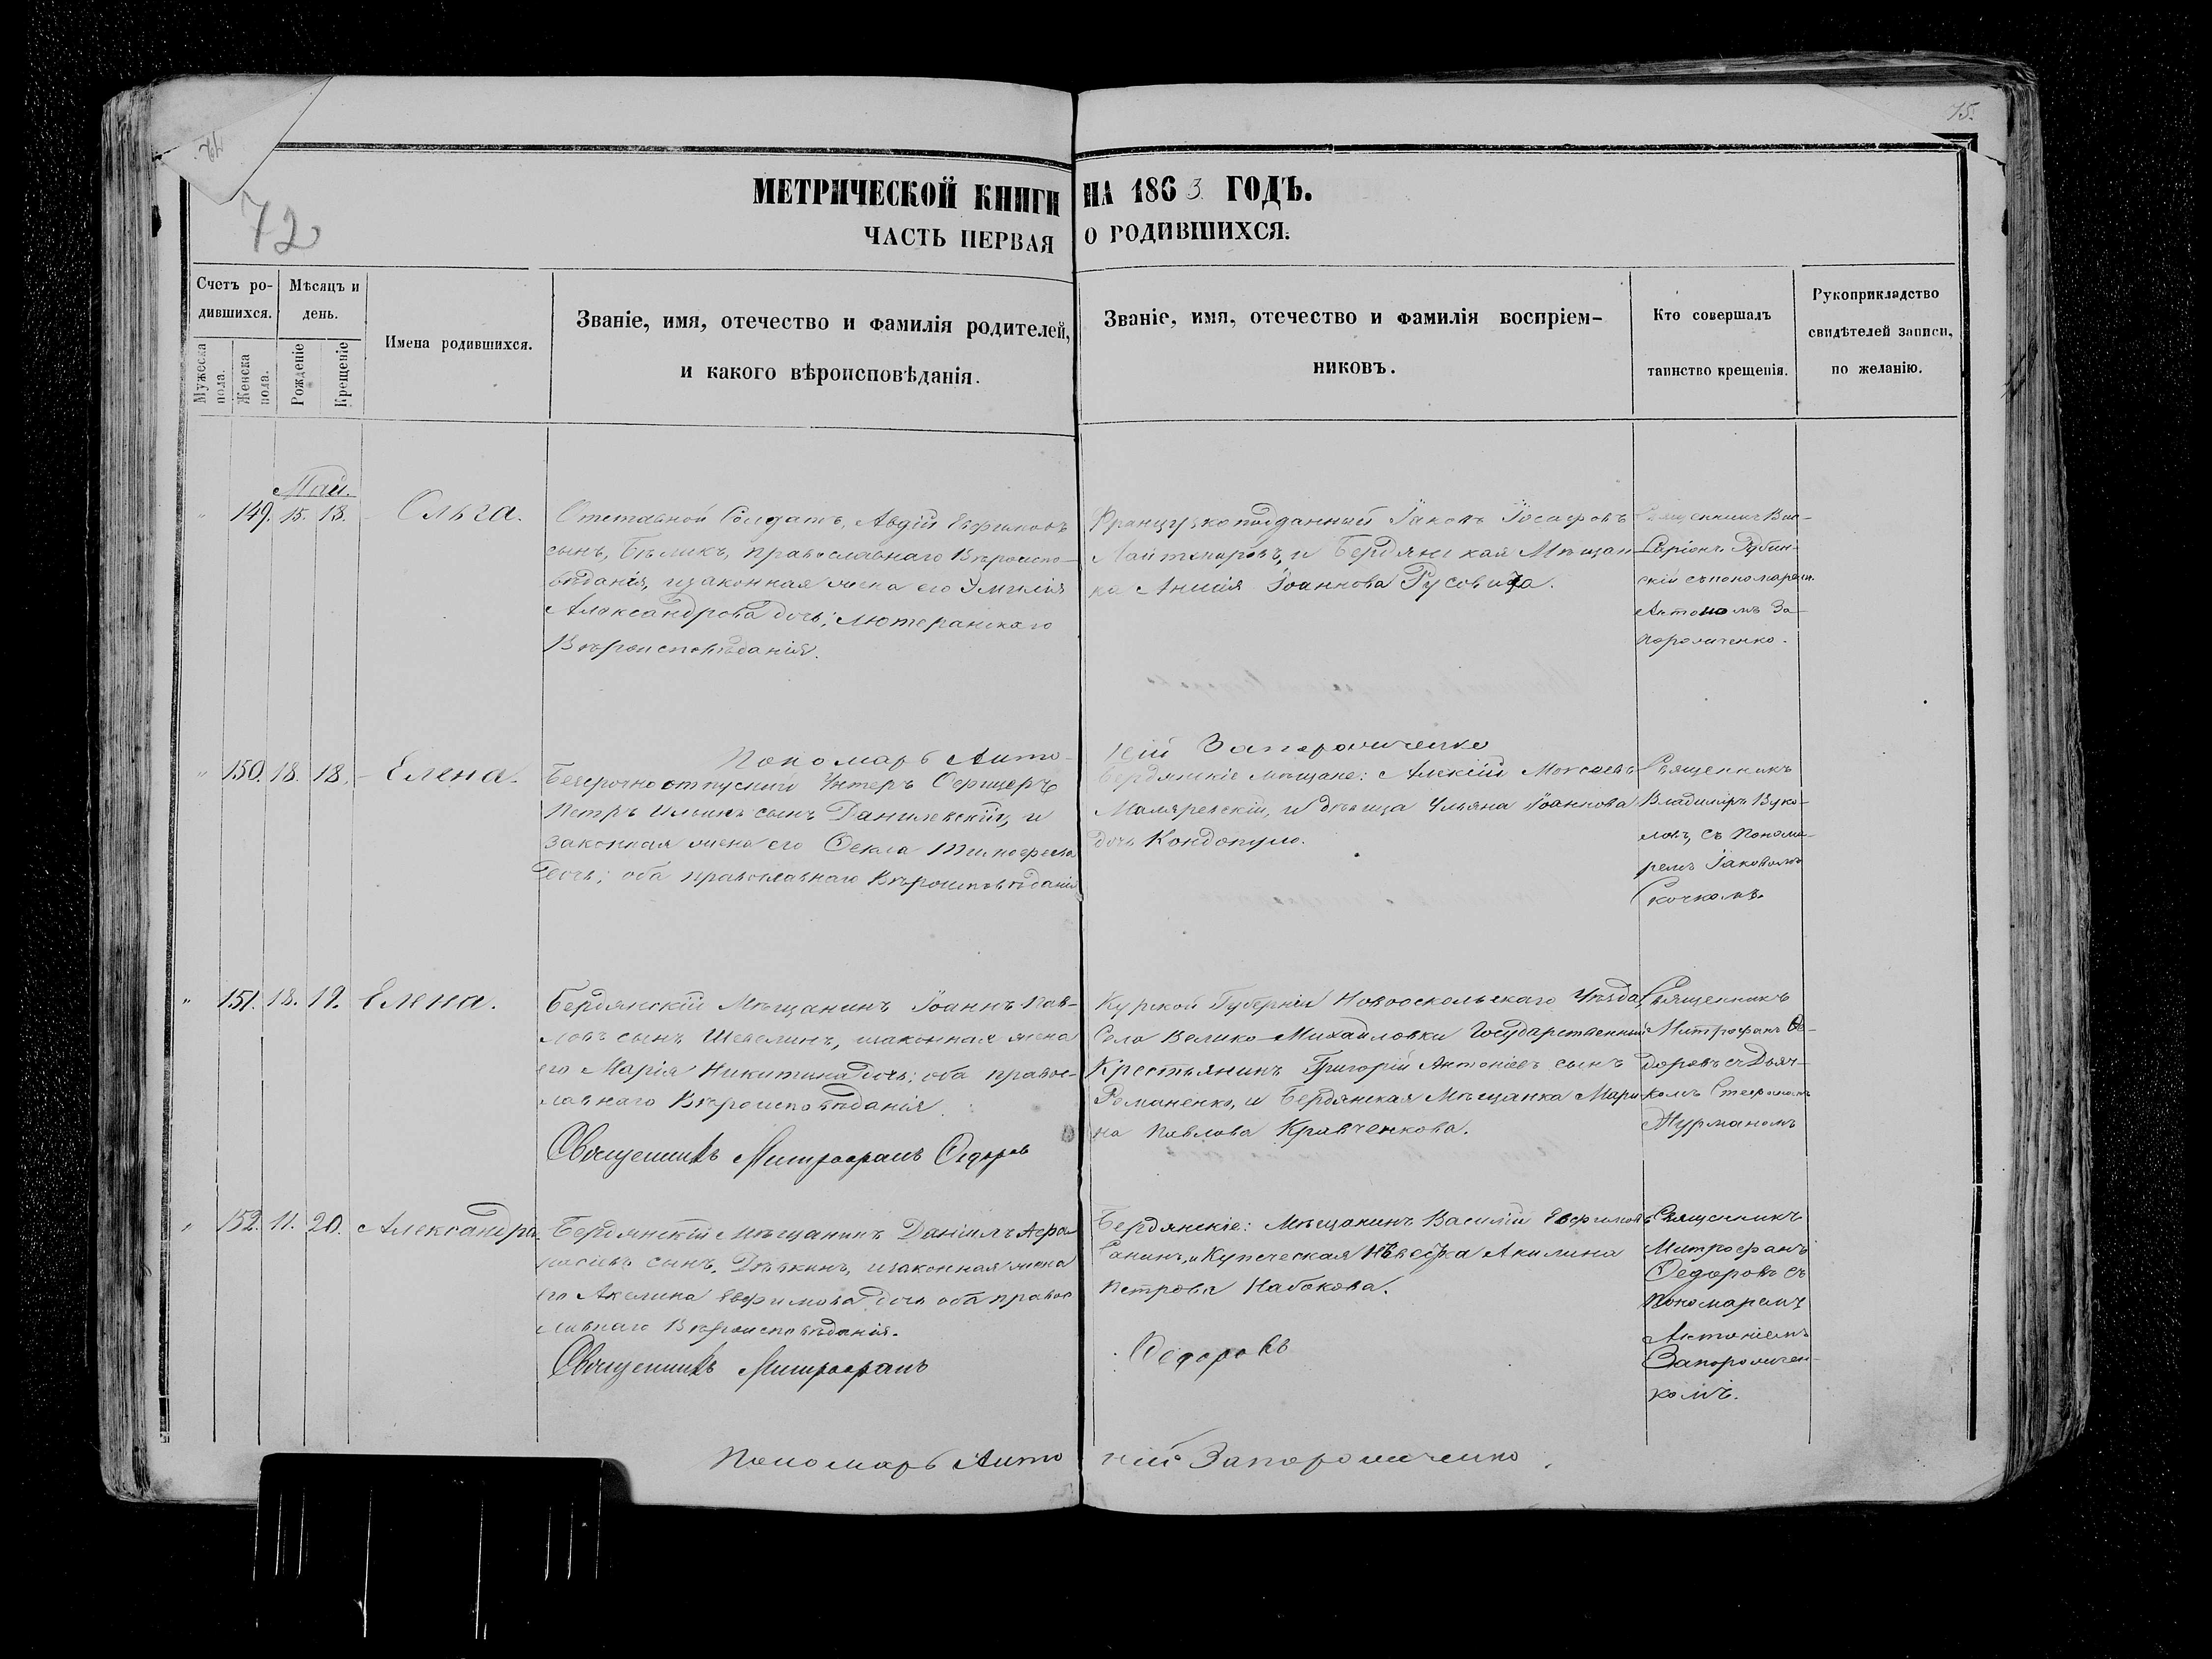 75.
72
МЕТРИЧЕСКОЙ КНИГИ НА 1863 ГОДЪ.
ЧАСТЬ ПЕРВАЯ О РОДИВШИХСЯ.
Счетъ ро-
дившихся.
Мужеска пола.
Женска пола.
Мѣсяцъ и
день.
Рожденіе
Крещеніе
Имена родившихся.
Званіе, имя, отечество и фамилія родителей,
и какого вѣроисповѣданія.
Званіе, имя, отечество и фамилія воспріем-
никовъ.
Кто совершалъ
таинство крещенія.
Рукоприкладство
свидѣтелей записи,
по желанію.
Май.
149. 15. 18. Ольга.
Отставной Солдатъ, Авдій Евфимовъ
сынъ, Бѣликъ, православнаго Вѣроиспо-
вѣданія, и законная жена его Эмилія
Александрова дочь; лютеранскаго
Вѣроисповѣданія.
Французскоподданный Іаковъ Іосифовъ
и Бердянская Мѣщан-
ка Іоаннова Русовича.
Священникъ Вис-
саріонъ
скій съ пономаремъ
За-
порожченко.
Пономарь Анто-
ній Запорожченко
150. 18. 18. Елена.
Безсрочноотпускный Унтеръ Офицеръ
Петръ Ильинъ сынъ Данилевскій, и
законная жена его Ѳекла Тимофеева
дочь; оба православнаго Вѣроисповѣданія
Бердянскіе мѣщане: Алексій Моисеевъ
Маляревскій, и дѣвица Ульяна Іоаннова
дочь Кондопуло.
Священникъ
Владиміръ Вуко-
ловъ, съ Понома-
ремъ Іаковомъ
Скочкомъ.
151. 18. 19. Елена.
Бердянскій Мѣщанинъ Іоаннъ Пав-
ловъ сынъ Шевелинъ, и законная жена
его Марія Никитина дочь; оба правос-
лавнаго Вѣроисповѣданія.
Священникъ Митрофанъ Ѳедоров
Курской Губерніи Новооскольскаго Уѣзда
Села Велико-Михайловки Государственный
Крестьянинъ Григорій Антоніевъ сынъ
Романенко, и Бердянская Мѣщанка Мари-
на Павлова Кравченкова.
Священникъ
Митрофанъ Ѳе-
доровъ съ Дьяч-
комъ Стефаномъ
Журманомъ
152. 11. 20. Александра.
Бердянскій Мѣщанинъ Даніилъ Афа-
насіевъ сынъ, и законная жена
его Акилина Евфимова дочь оба правос-
лавнаго Вѣроисповѣданія.
Священникъ Митрофанъ
Ѳедоровъ
Бердянскіе: Мѣщанинъ Василій Евфимовъ
Санинъ, и Купеческая Невѣстка Акилина
Петрова Набокова.
Священникъ
Митрофанъ
Ѳедоровъ съ
Пономаремъ
Антоніемъ
Запорожчен-
комъ.
Пономарь Анто ній Запорожченко